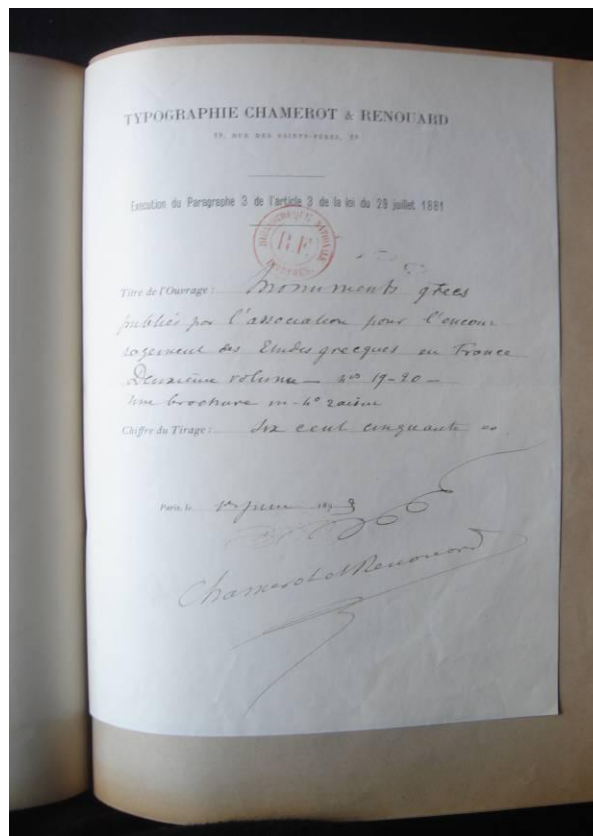 TYPOGRAPHIE CHAMEROT & RENOUARD
19, RUE DES SAINTS-PÈRES, 19
Exécution du Paragraphe 3 de l'article 3 de la loi du 29 juillet 1881
BIBLIOTHÈQUE NATIONALE
R.F.
Titre de l'Ouvrage : Monuments grecs
publiés par l'association pour l'encou
ragement des Etudes grecques en France
Deuxième volume — nos 19-20 —
une brochure in-4o raisin
Chiffre du Tirage : Six cent cinquante
Paris, le 1er juin 1893
Chamerot et Renouard